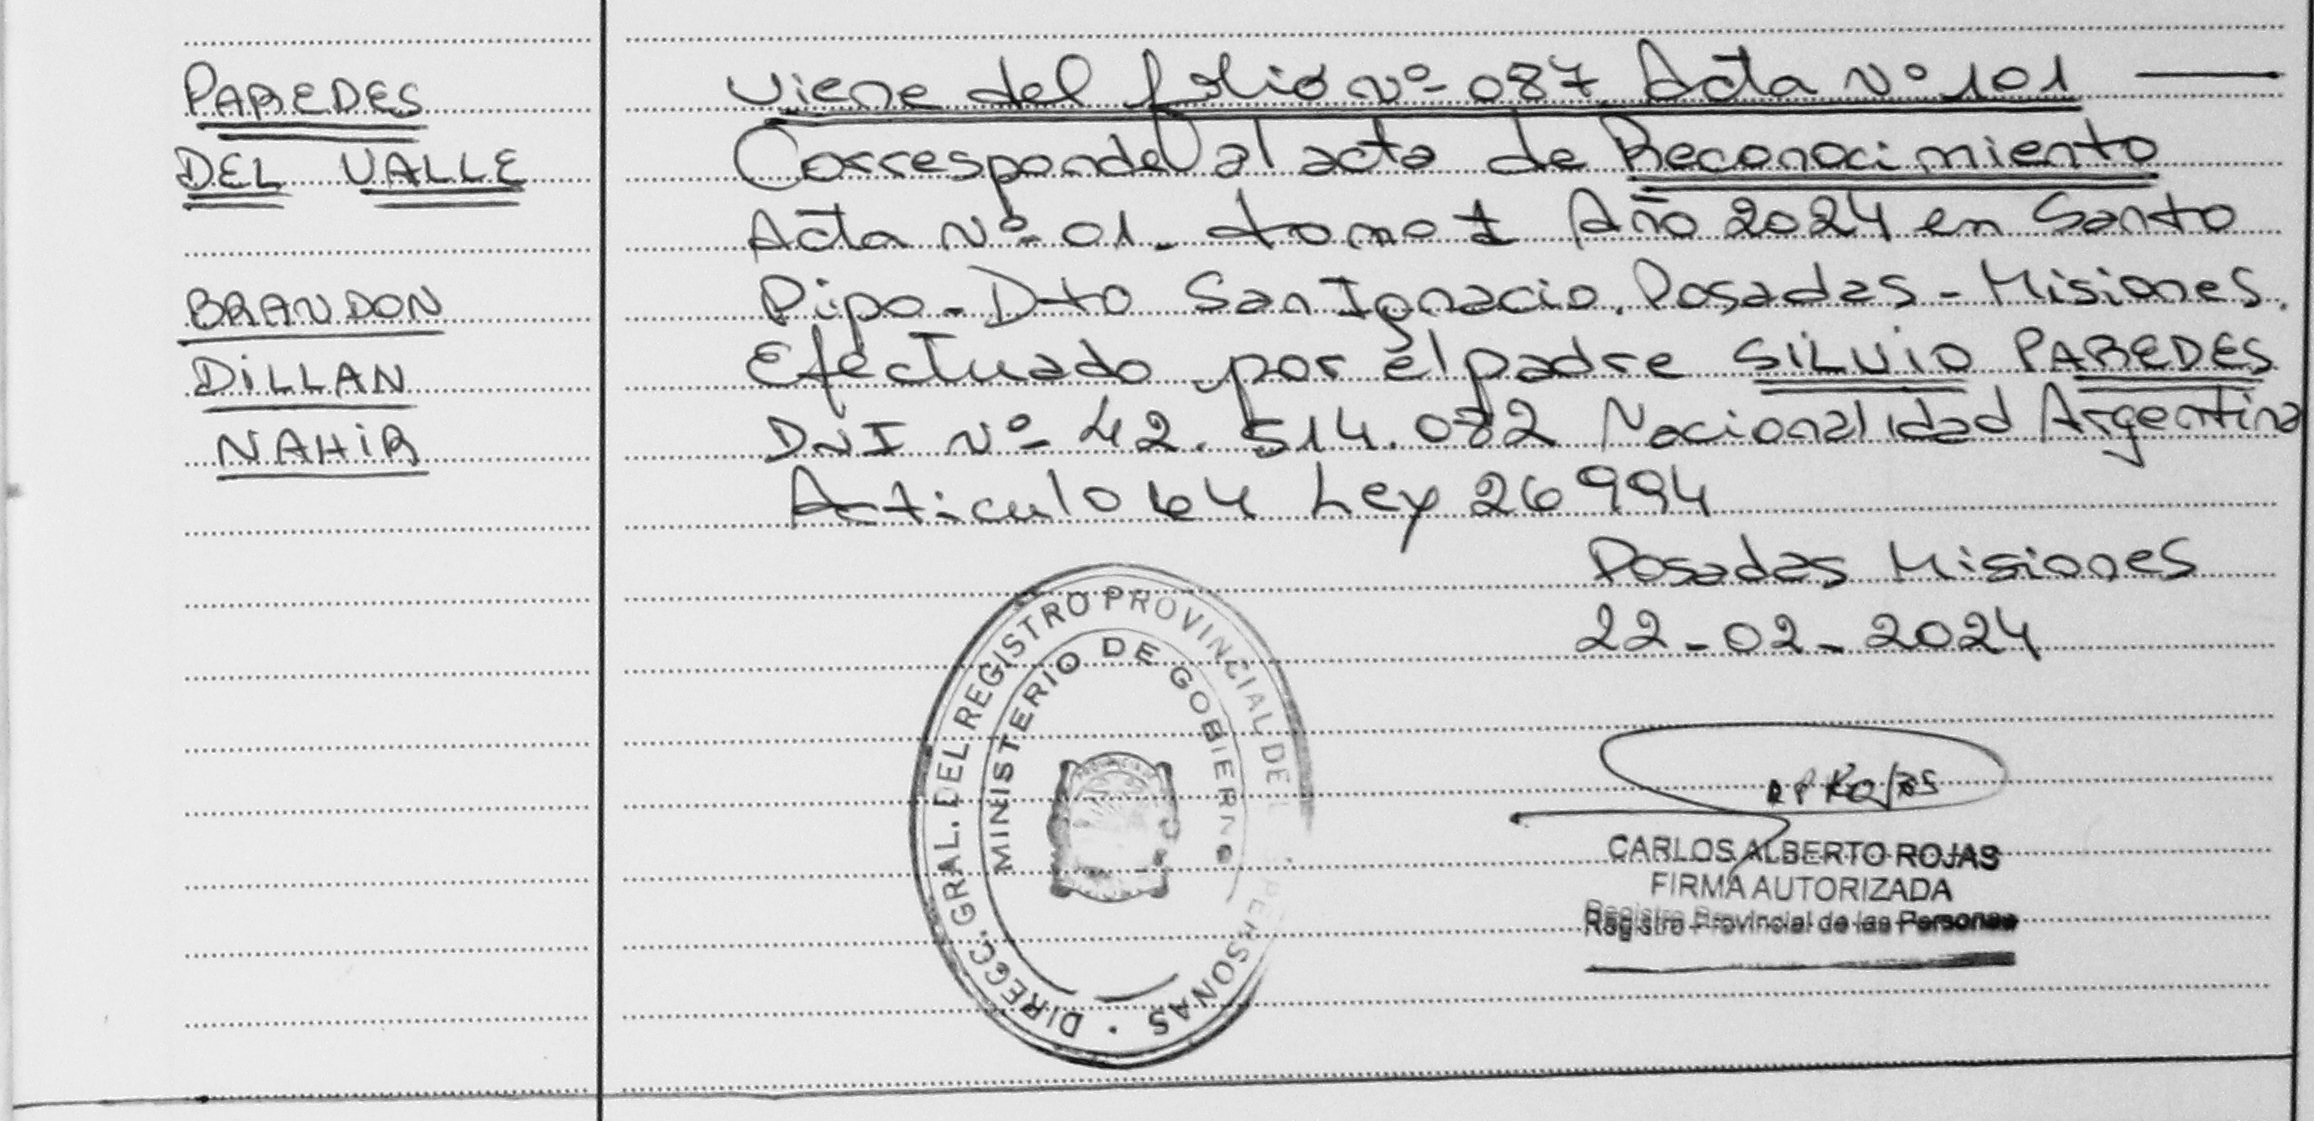 PAREDES
DEL VALLE
BRANDON
DILLAN
NAHIR
Viene del folio Nº 087 Acta Nº 101
Corresponde al acta de Reconocimiento
Acta Nº 01 - tomo I Año 2024 en Santo
Pipo - Dto San Ignacio. Posadas - Misiones.
Efectuado por el padre SILVIO PAREDES
DNI Nº 42.514.082 Nacionalidad Argentina
Articulo 64 Ley 26994
Posadas Misiones
22-02-2024
DIRECC. GRAL. DEL REGISTRO PROVINCIAL DE PERSONAS
MINISTERIO DE GOBIERNO
CARLOS ALBERTO ROJAS
FIRMA AUTORIZADA
Registro Provincial de las Personas